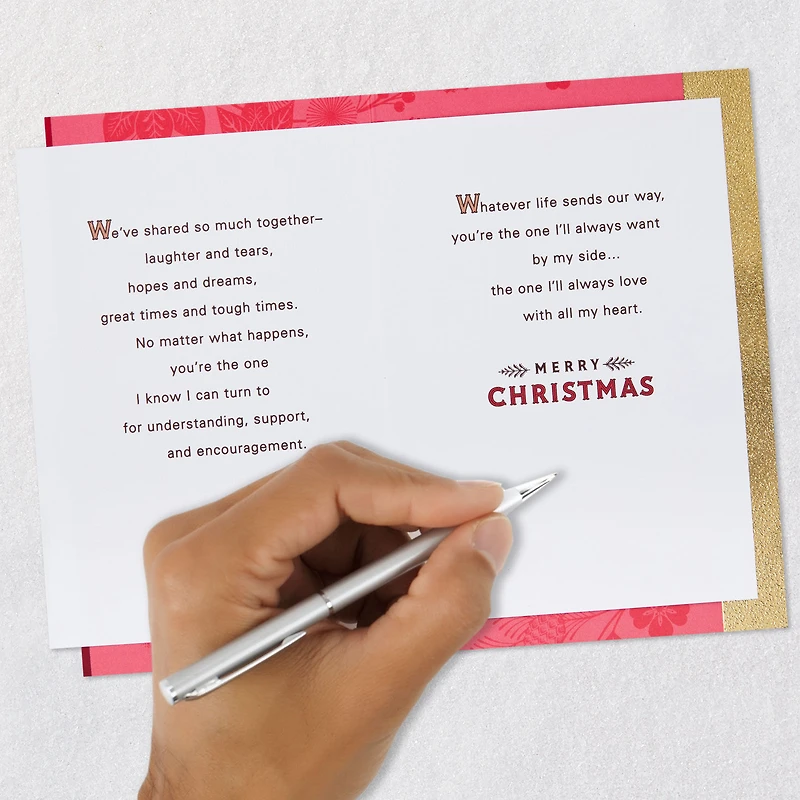 We've shared so much together–
laughter and tears,
hopes and dreams,
great times and tough times.
No matter what happens,
you're the one
I know I can turn to
for understanding, support,
and encouragement.
Whatever life sends our way,
you're the one I'll always want
by my side...
the one I'll always love
with all my heart.
MERRY
CHRISTMAS